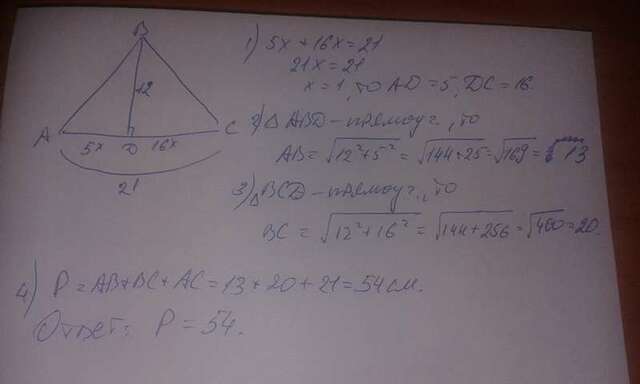 B
12
A 5x D 16x C
21
1) 5x + 16x = 21
21x = 21
x = 1, то AD = 5, DC = 16.
2) △ ABD – прямоуг., то
AB = √12² + 5² = √144 + 25 = √169 = 13
3) △ BCD – прямоуг., то
BC = √12² + 16² = √144 + 256 = √400 = 20.
4) P = AB + BC + AC = 13 + 20 + 21 = 54 см.
Ответ: P = 54.